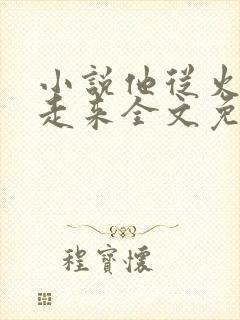 小說他從火
走来全文免
程寶懷